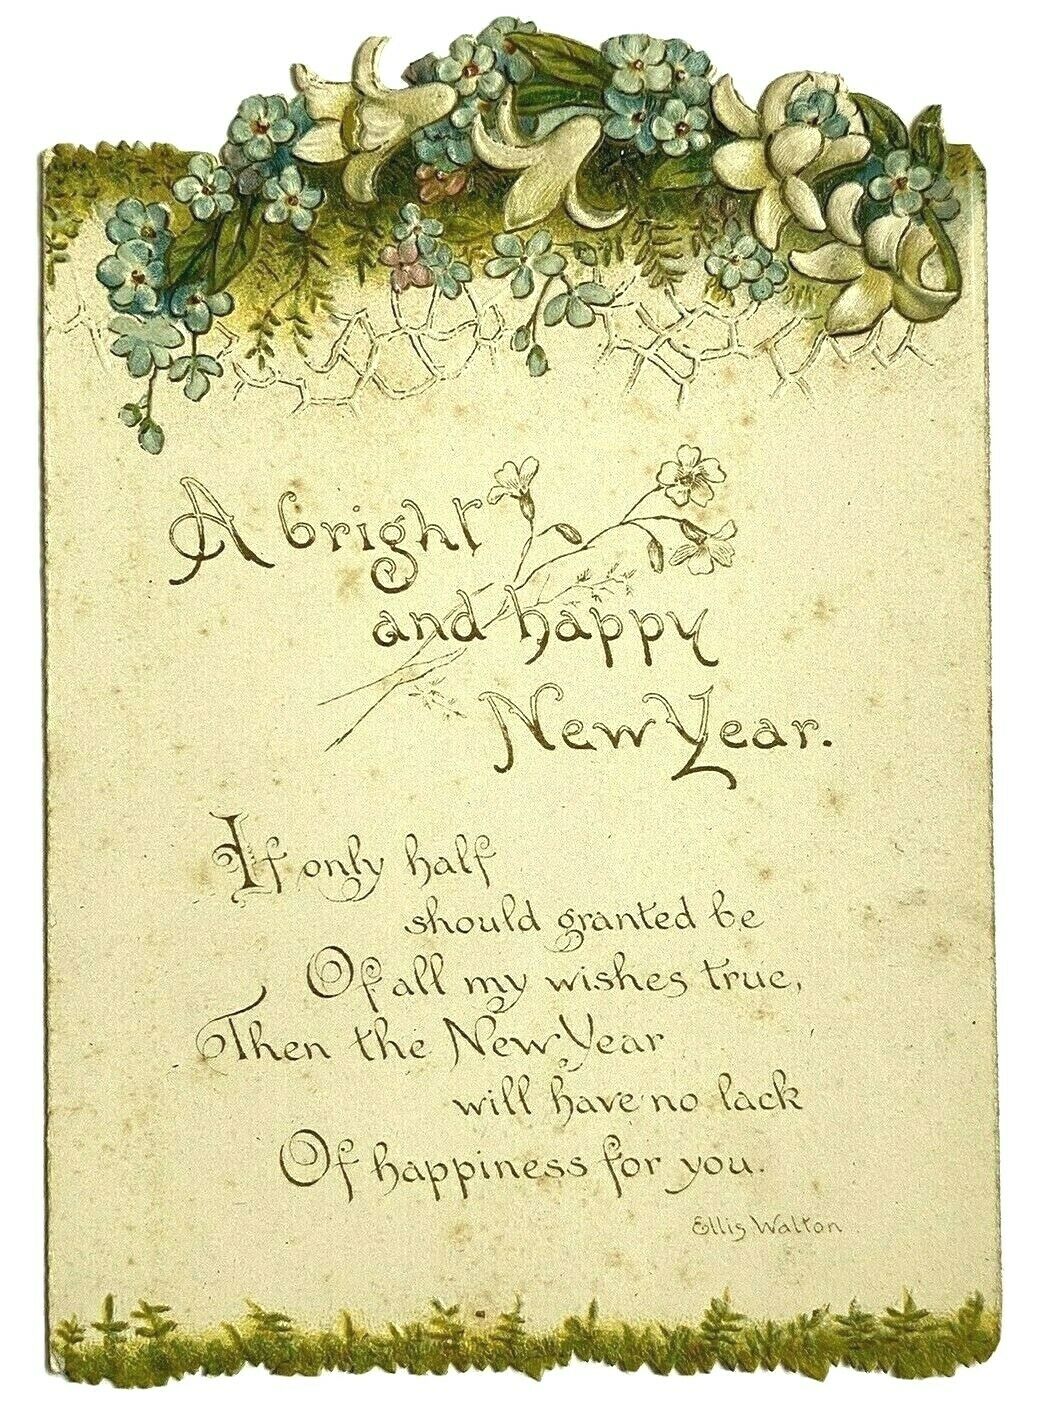 A bright
and happy
New Year.
If only half
should granted be
Of all my wishes true,
Then the New Year
will have no lack
Of happiness for you.
Ellis Walton